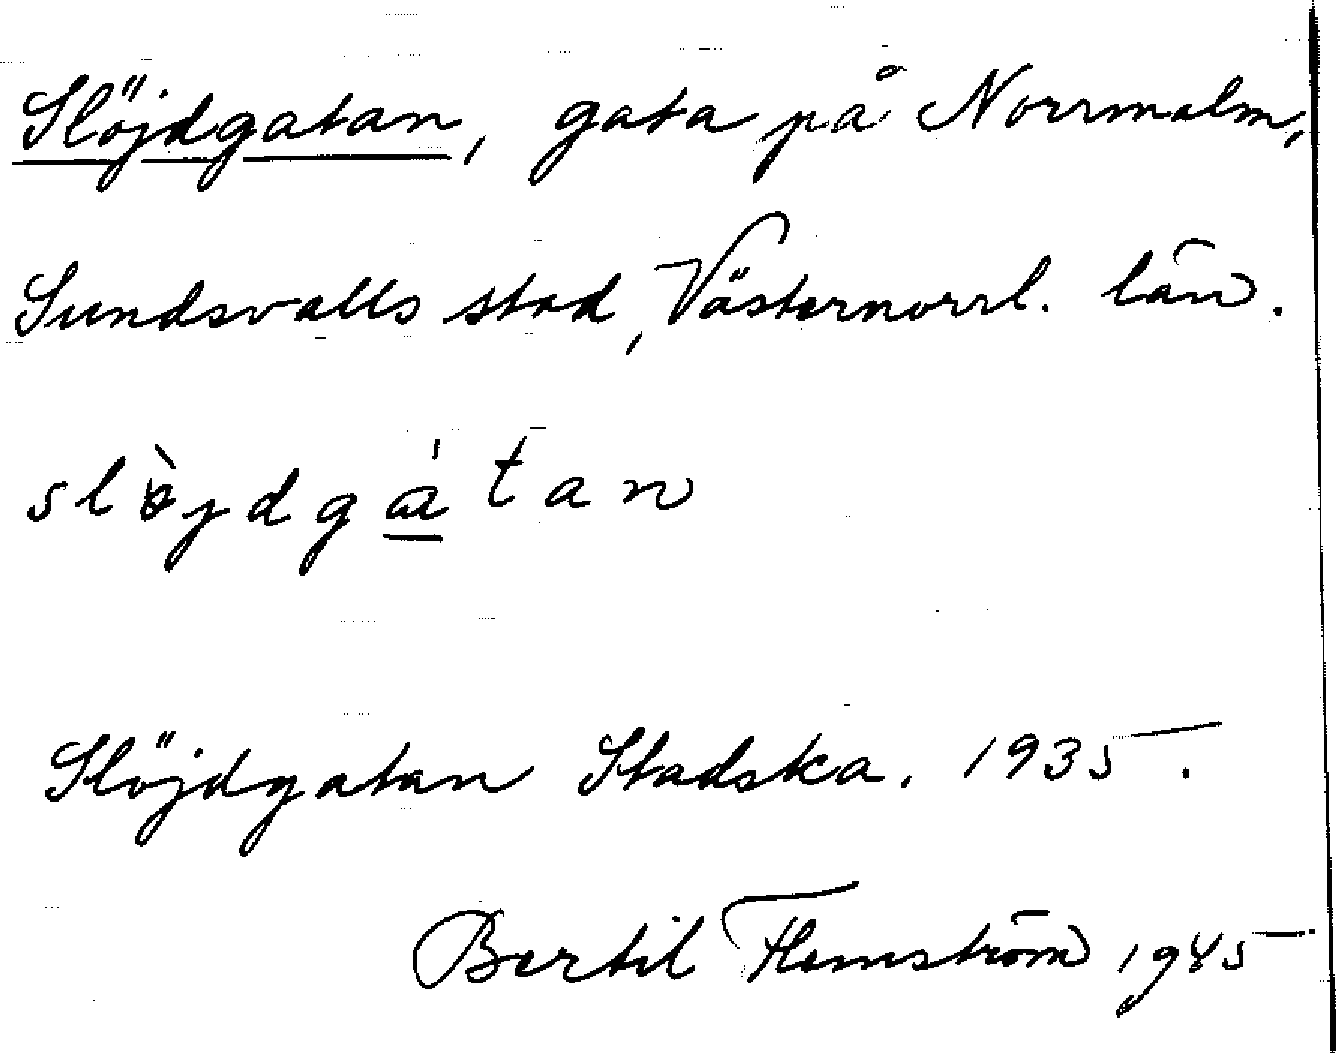 Slöjdgatan, gata på Norrmalm,
Sundsvalls stad, Västernorrl. län.
slòjdgátan
Slöjdgatan Stadska. 1935.
Bertil Flemström 1945